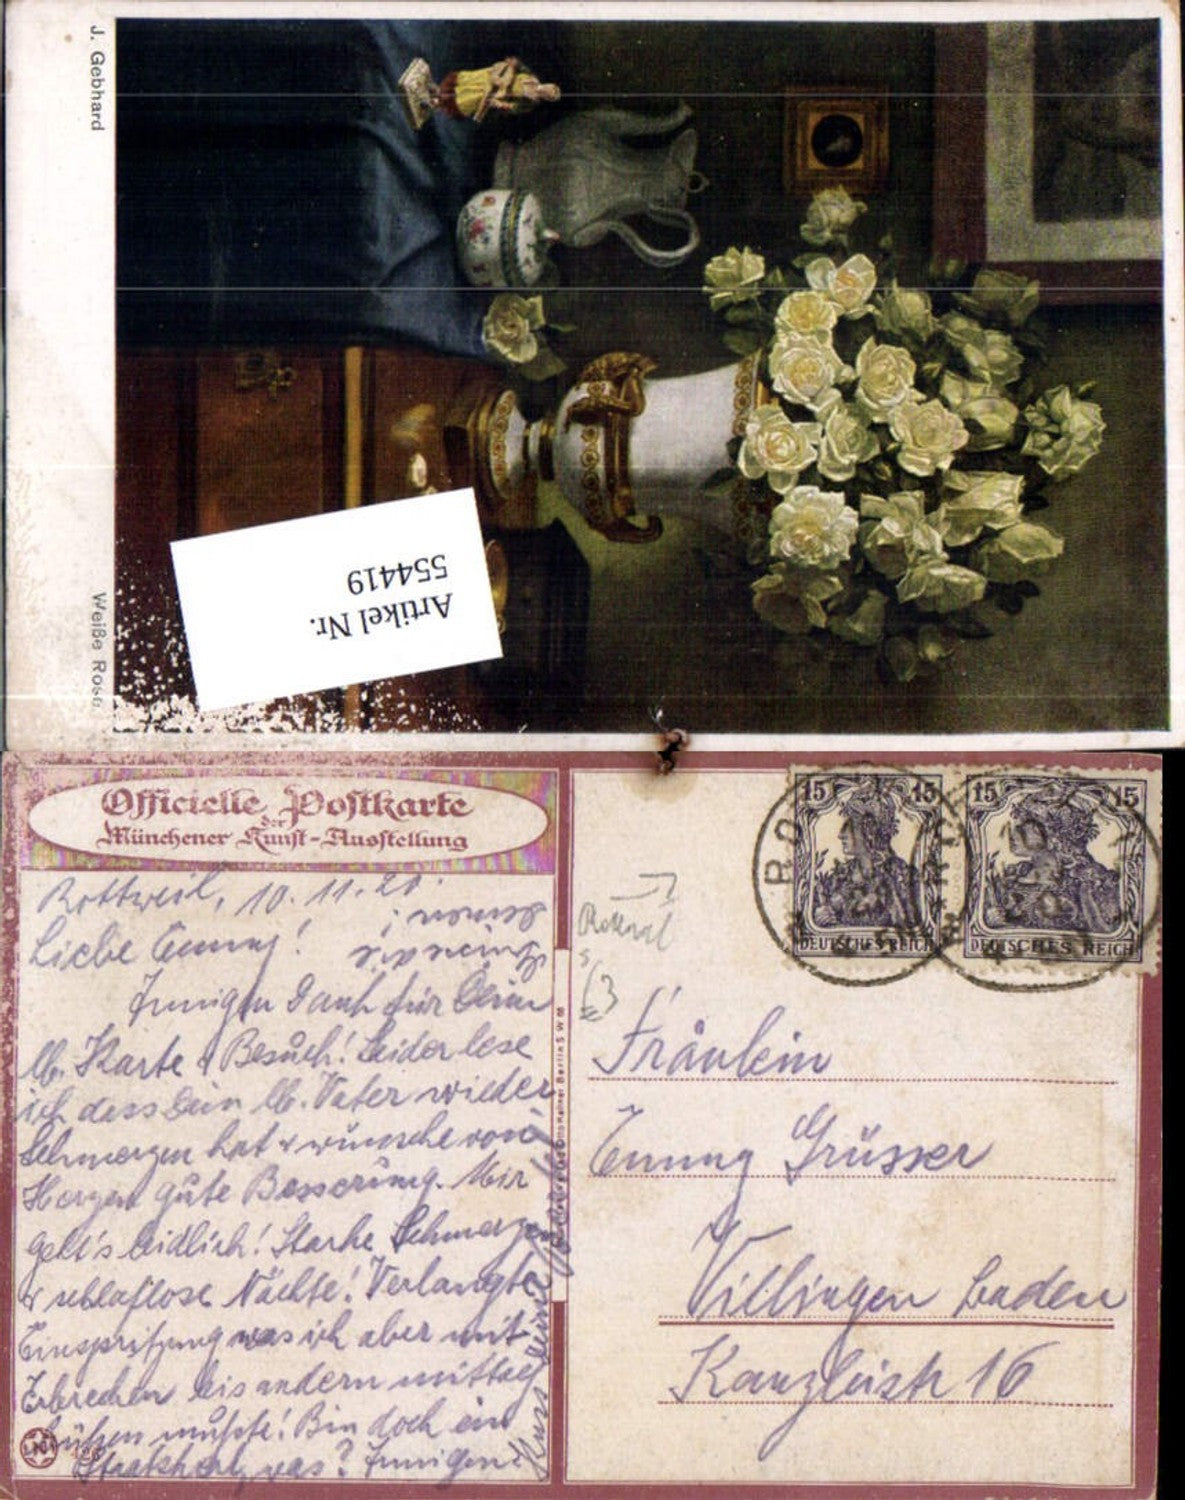 J. Gebhard
Weiße Rosen
Artikel Nr.
554419
Officielle Postkarte
der
Münchener Kunst-Ausstellung
Rottweil, 10.11.20.
Liebe Emmy!
Innigen Dank für Deine
lb. Karte & Besuch! Leider lese
ich dass Dein lb. Vater wieder
Schmerzen hat & wünsche von
Herzen gute Besserung. Mir
geht's leidlich! Starke Schmerzen
& schlaflose Nächte! Verlangte
Einspritzung was ich aber mit
Erbrechen bis andern mittag
büßen mußte! Bin doch ein
was? Innigen
Kuss deine
15 15
DEUTSCHES REICH
15 15
DEUTSCHES REICH
Fräulein
Emmy Grüsser
Villingen Baden
Kanzleistr 16